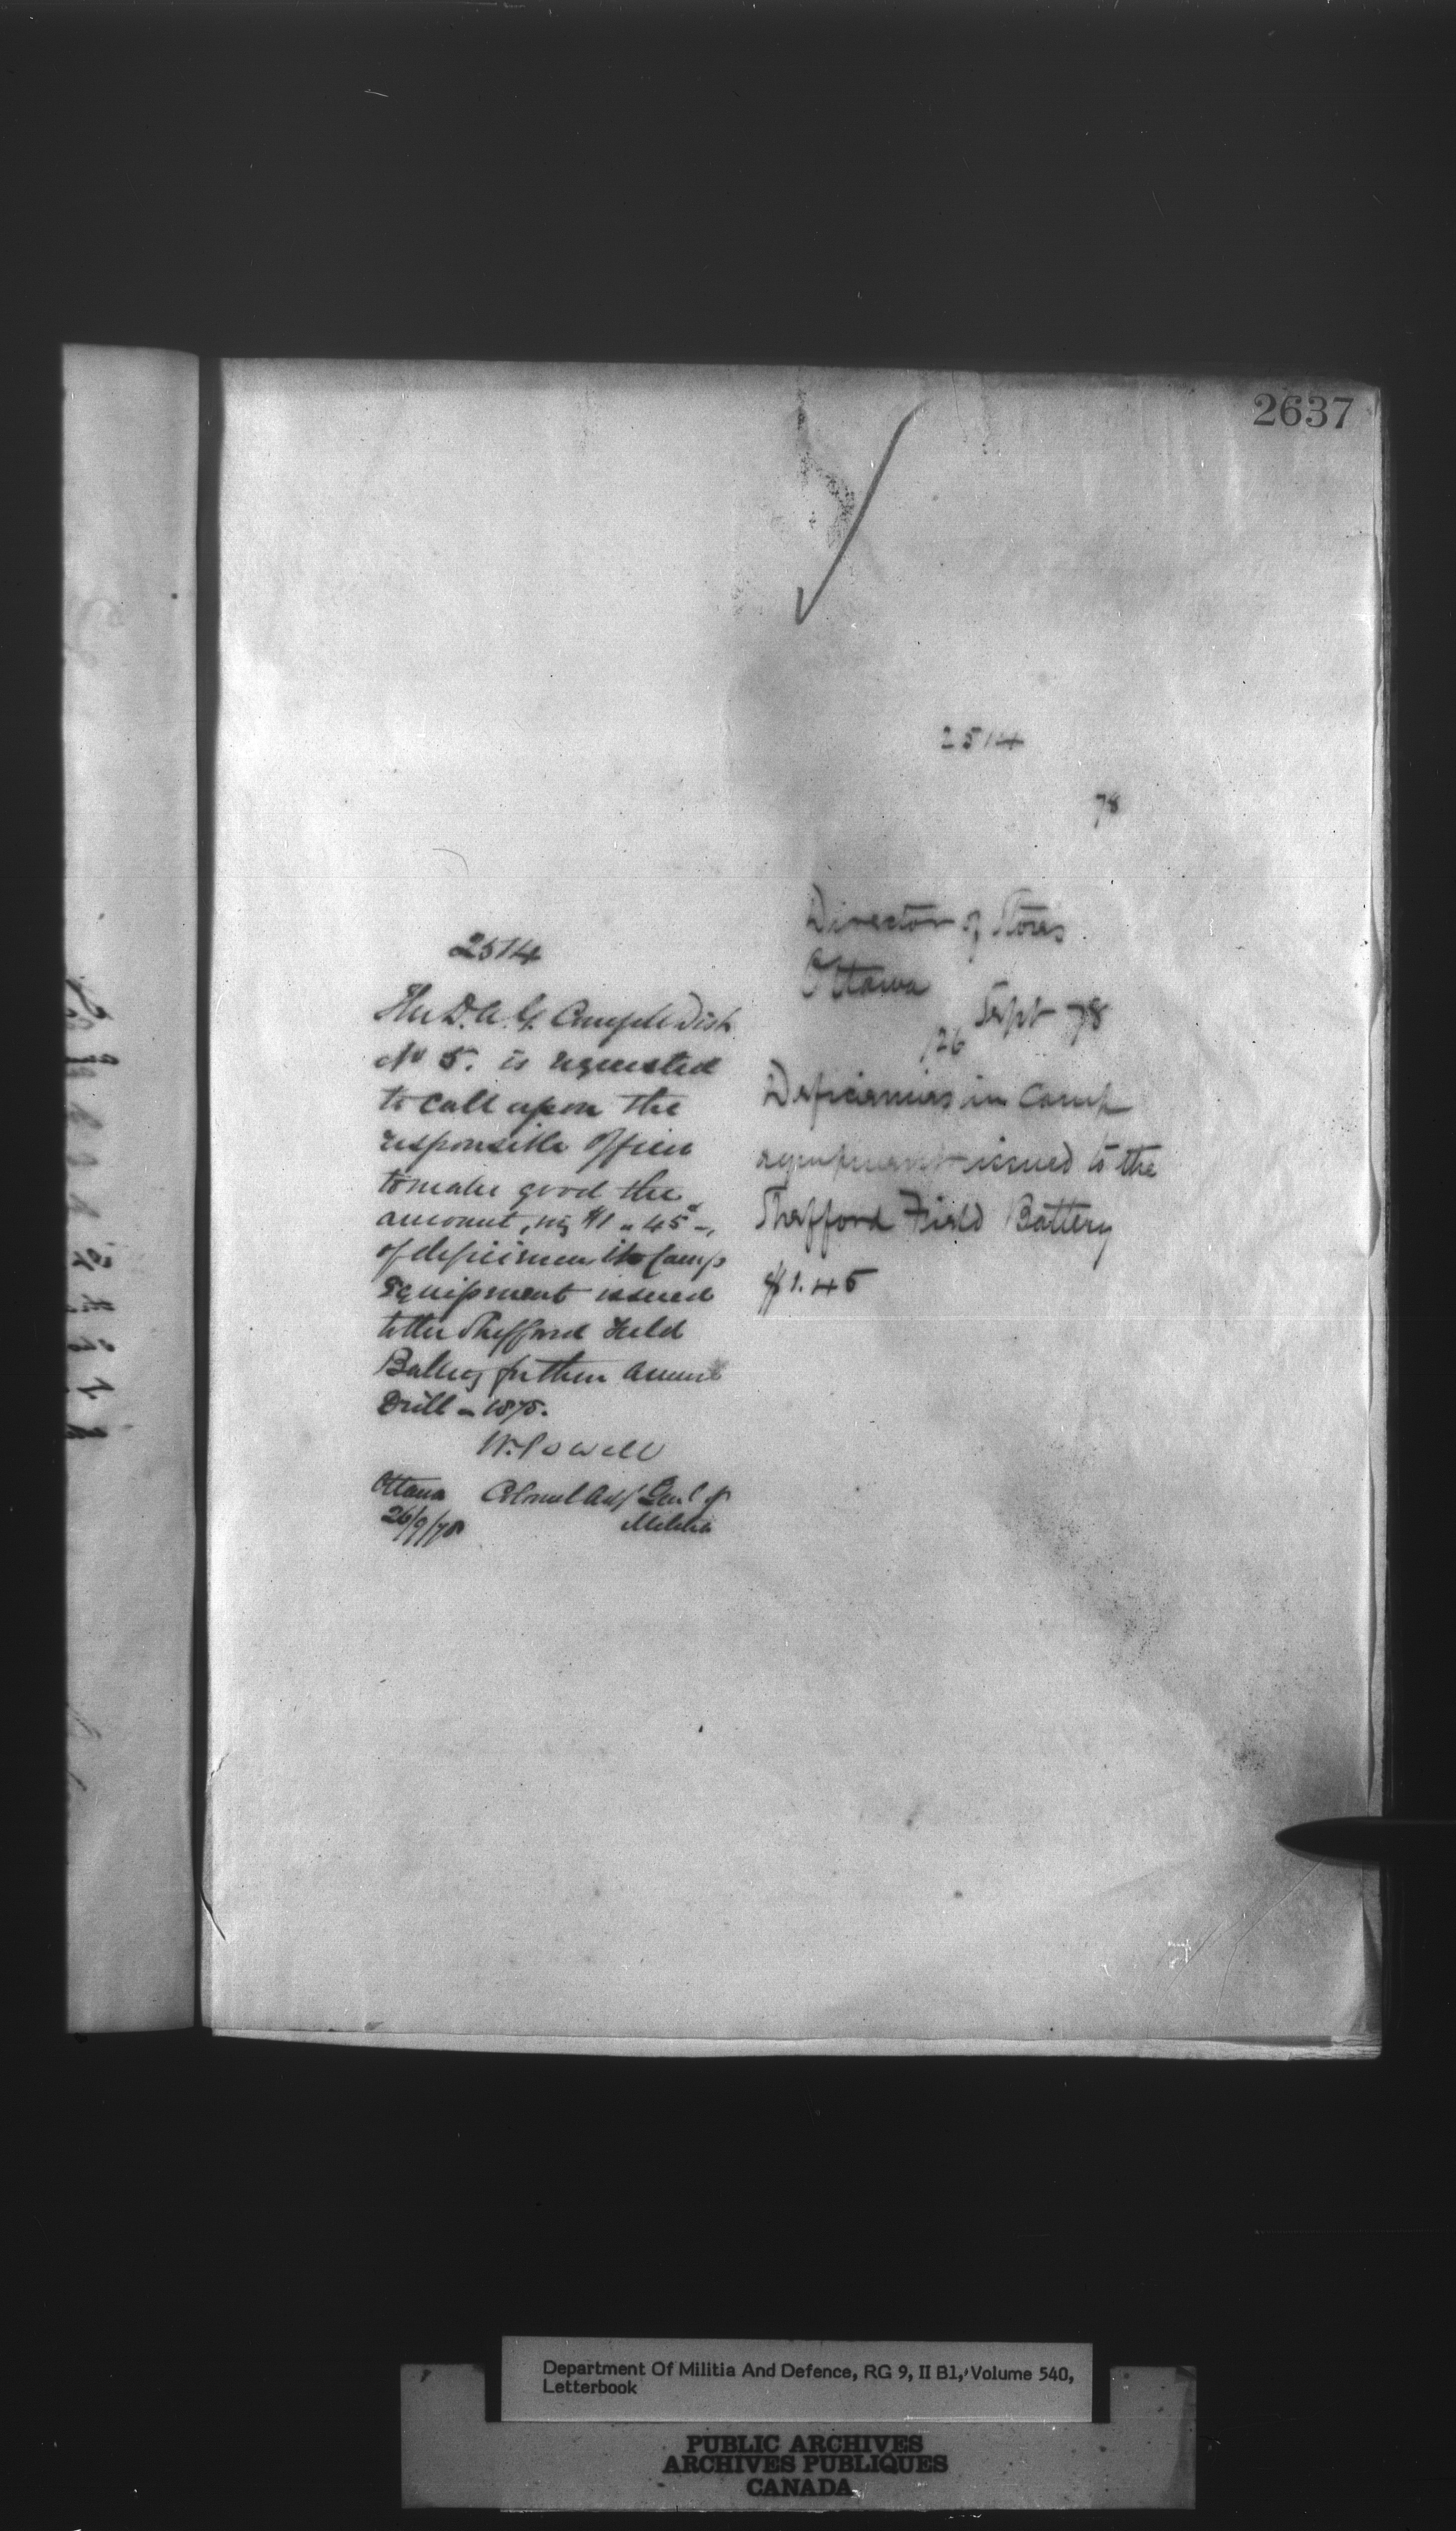 2637
2514
78
Director of Stores
Ottawa
26 Sept 78
Deficiencies in Camp
equipment issued to the
Shefford Field Battery
$1.45
2514
The D.A.G. Comg Mil Dist
No 5. is requested
to call upon the
responsible Officer
to make good the
amount, viz $1 " 45 -,
of deficiencies in Camp
Equipment issued
to the Shefford Field
Battery for their Annual
Drill - 1878.
W. Powell
Colonel Adj Genl of
Militia
Ottawa
26/9/78
Department Of Militia And Defence, RG 9, II B1, Volume 540,
Letterbook
PUBLIC ARCHIVES
ARCHIVES PUBLIQUES
CANADA